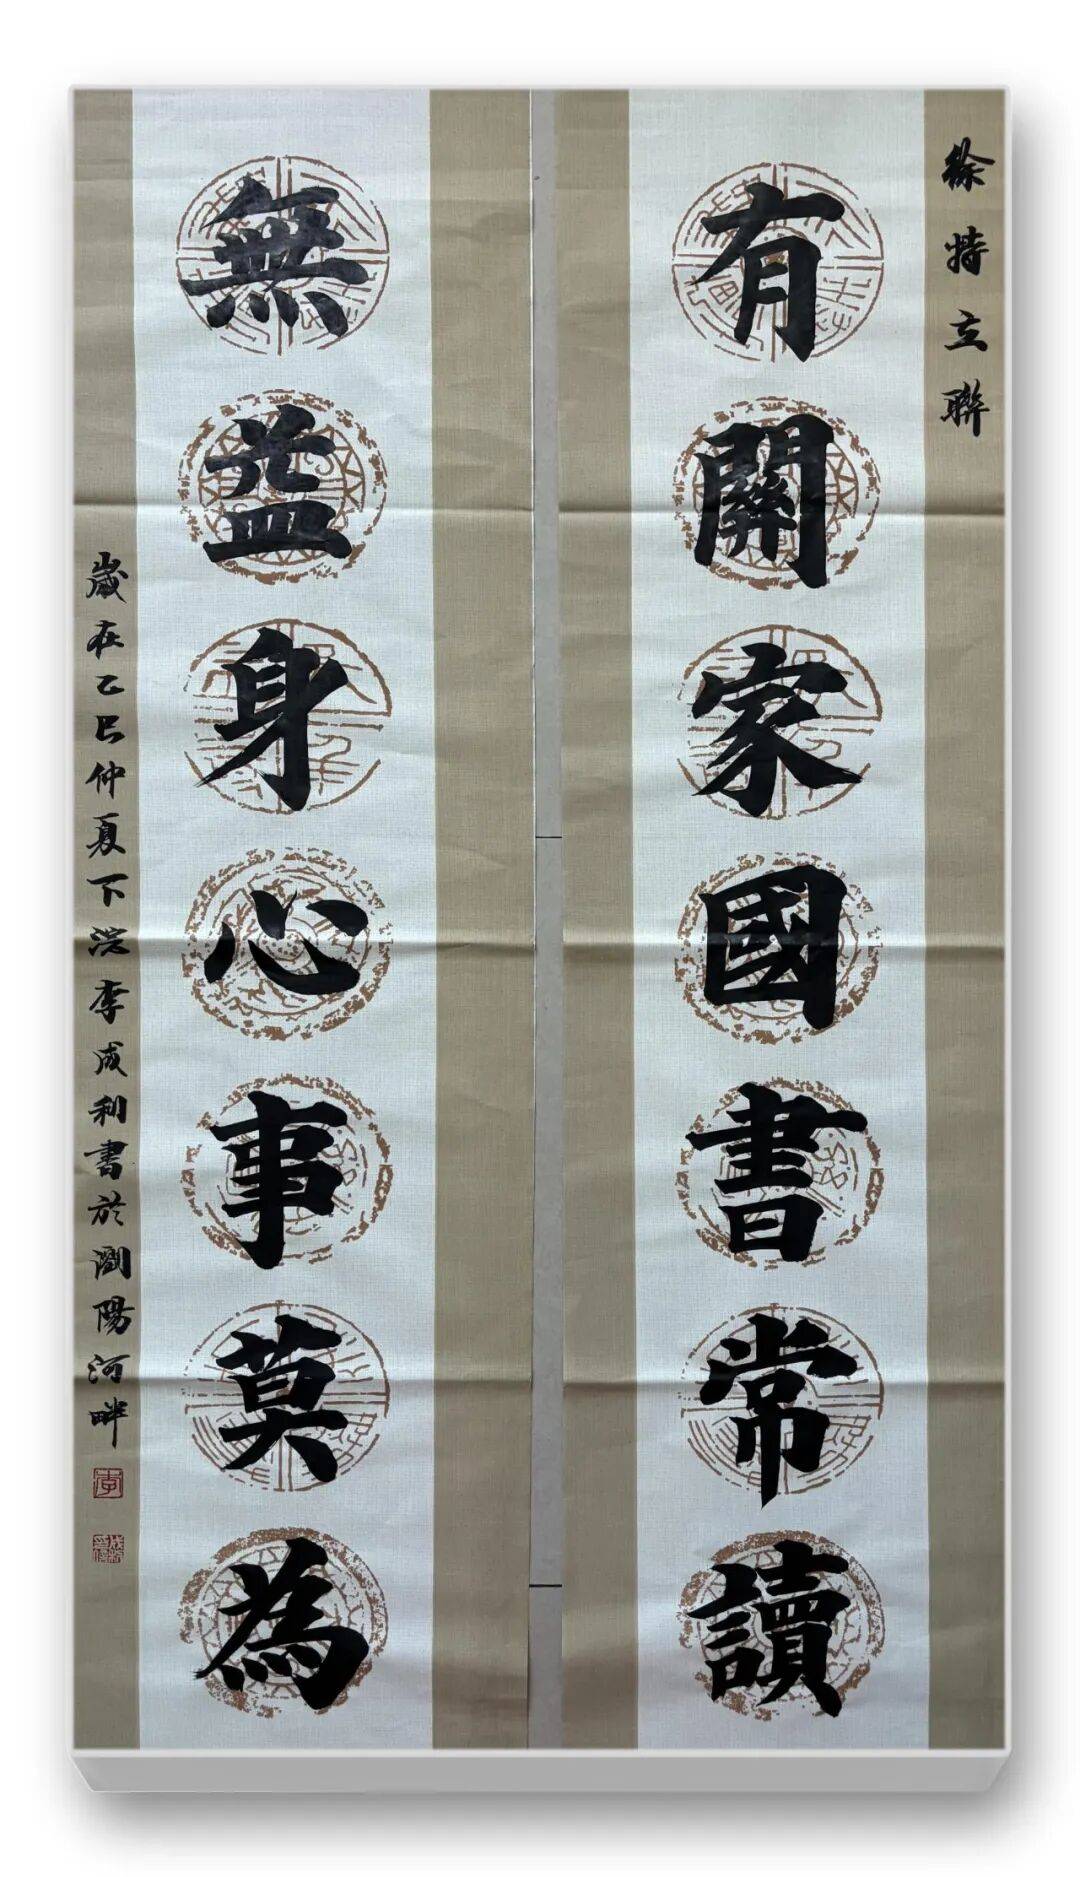 徐特立聯
有關家國書常讀
無益身心事莫為
歲在乙巳仲夏下浣李成利書於瀏陽河畔
李